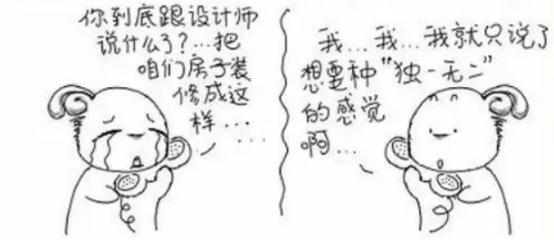 你到底跟设计师
说什么了?...把
咱们房子装
修成这
样...
我...我...我就只说了
想要种“独一无二”
的感觉
啊...